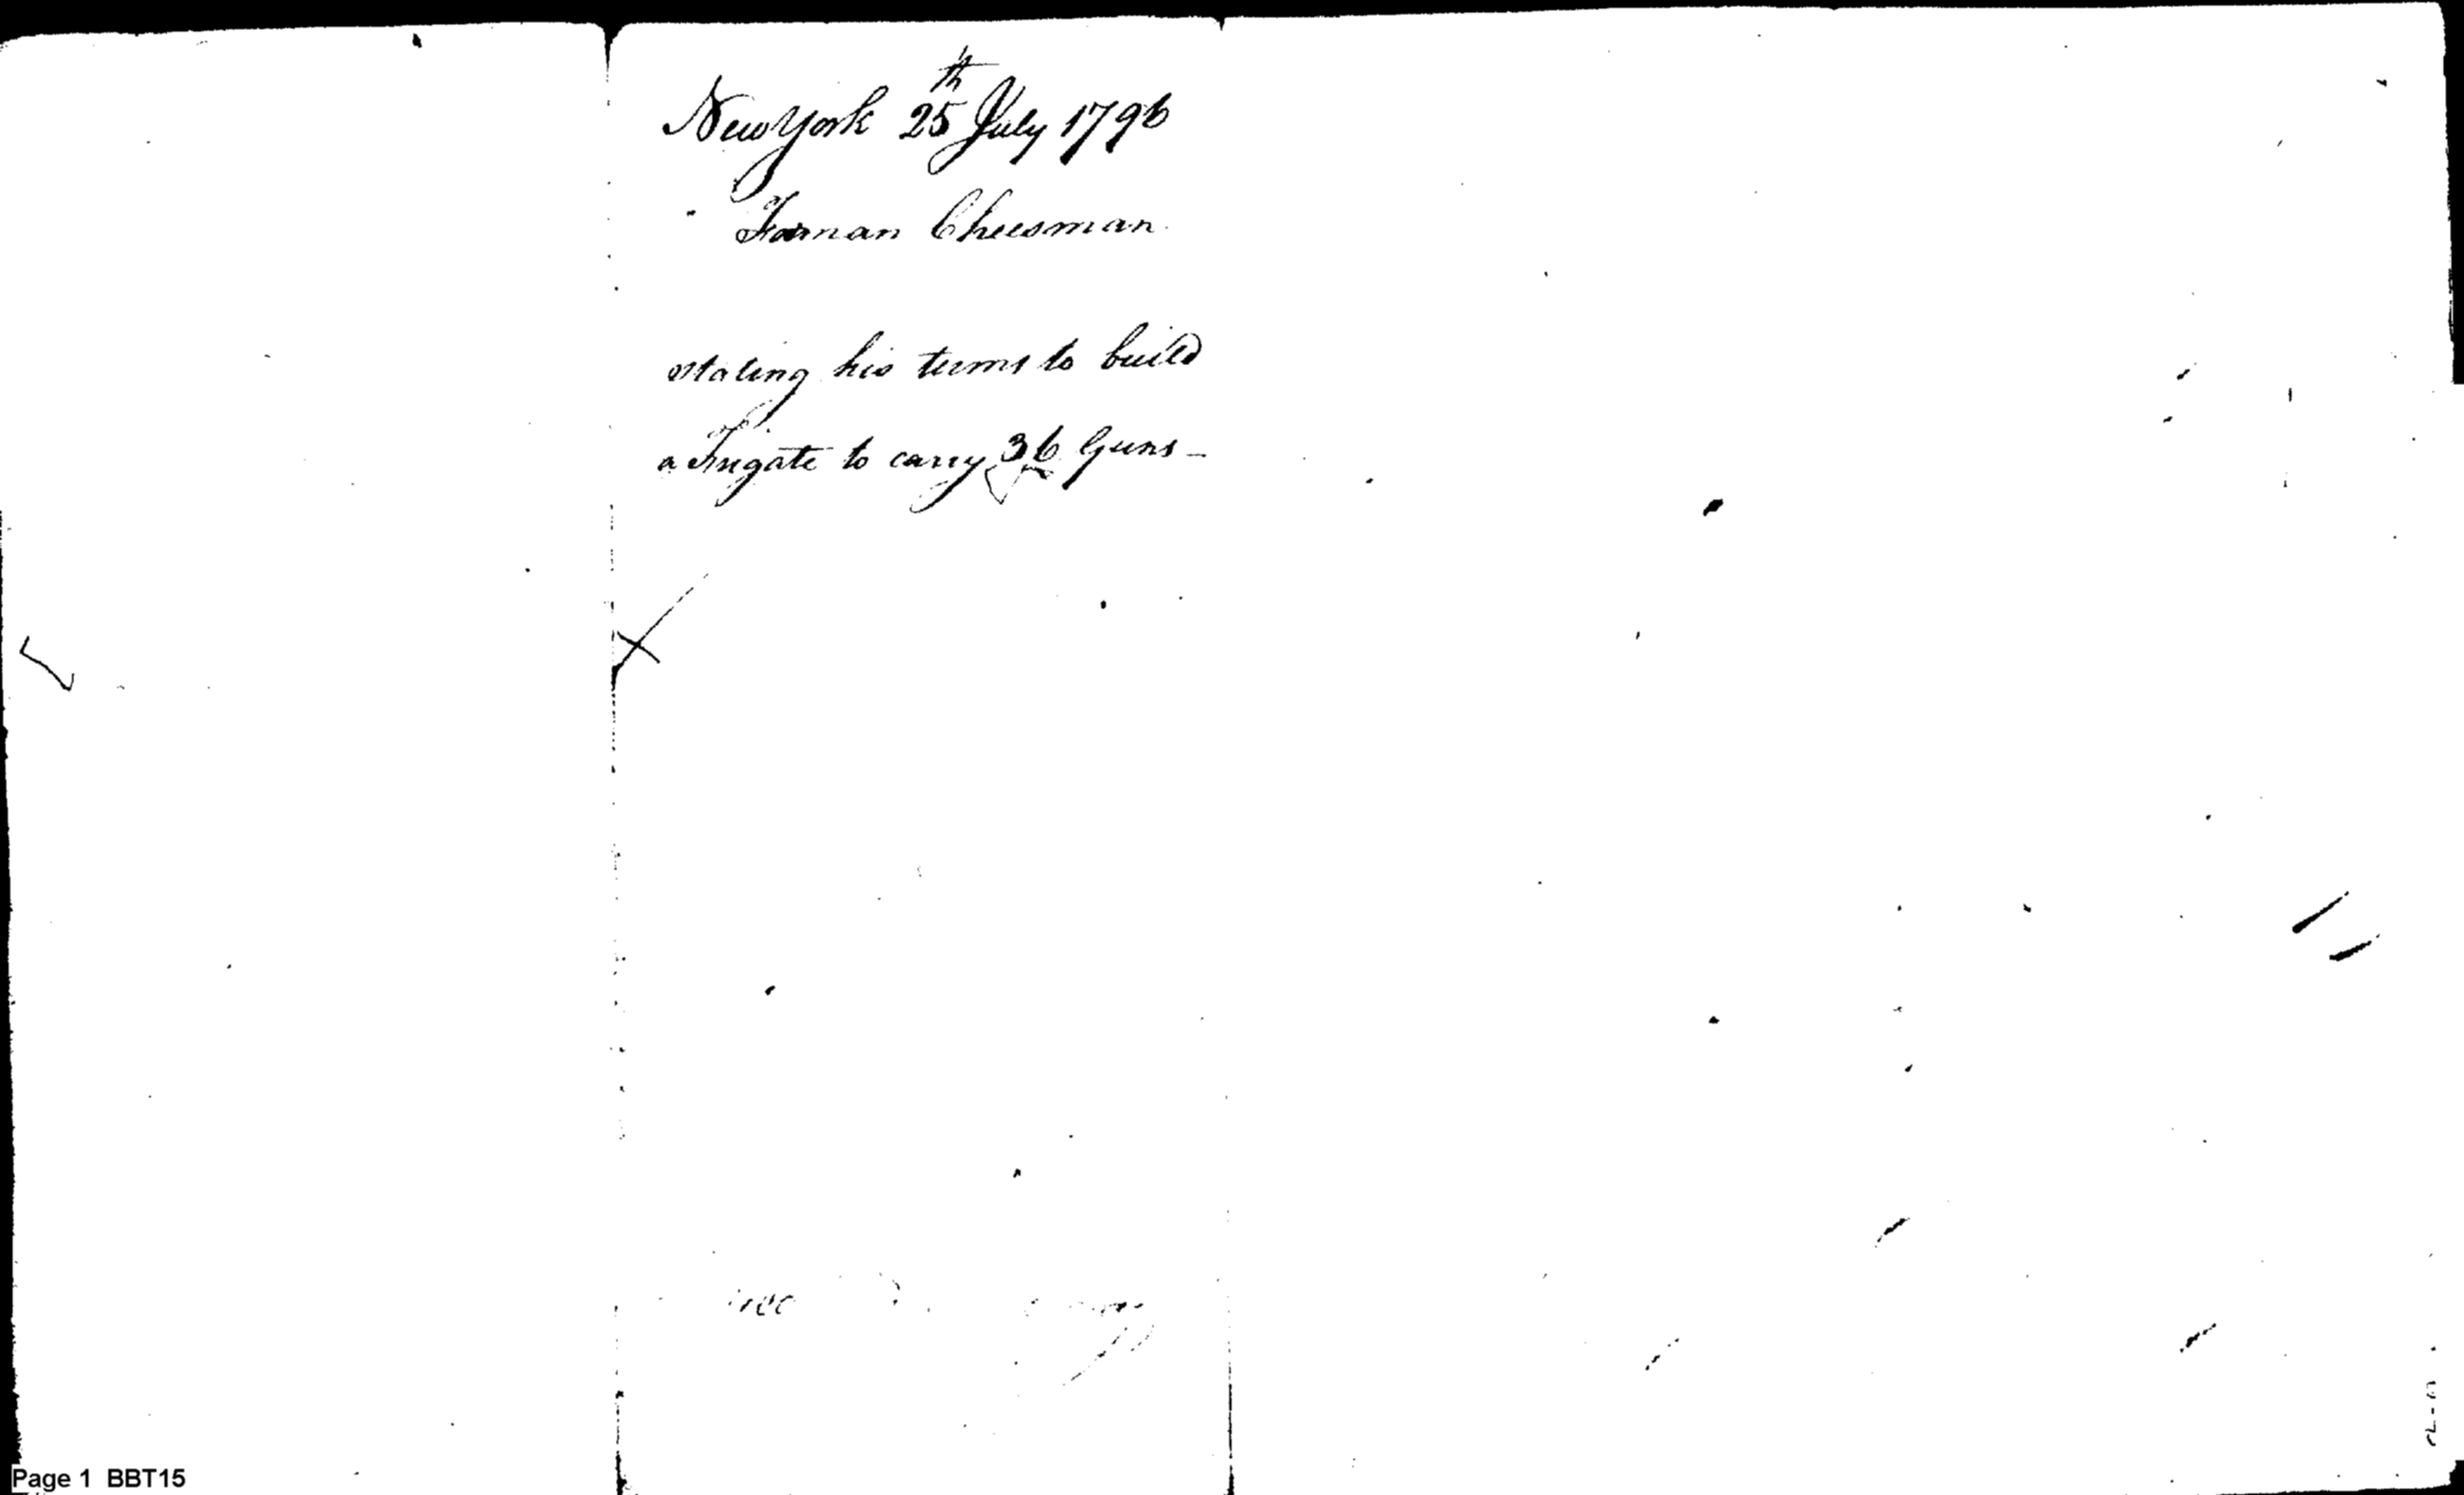 New York 25th July 1796
Forman Cheesman.
stating his terms to build
a Frigate to carry 36 Guns -
Page 1 BBT15